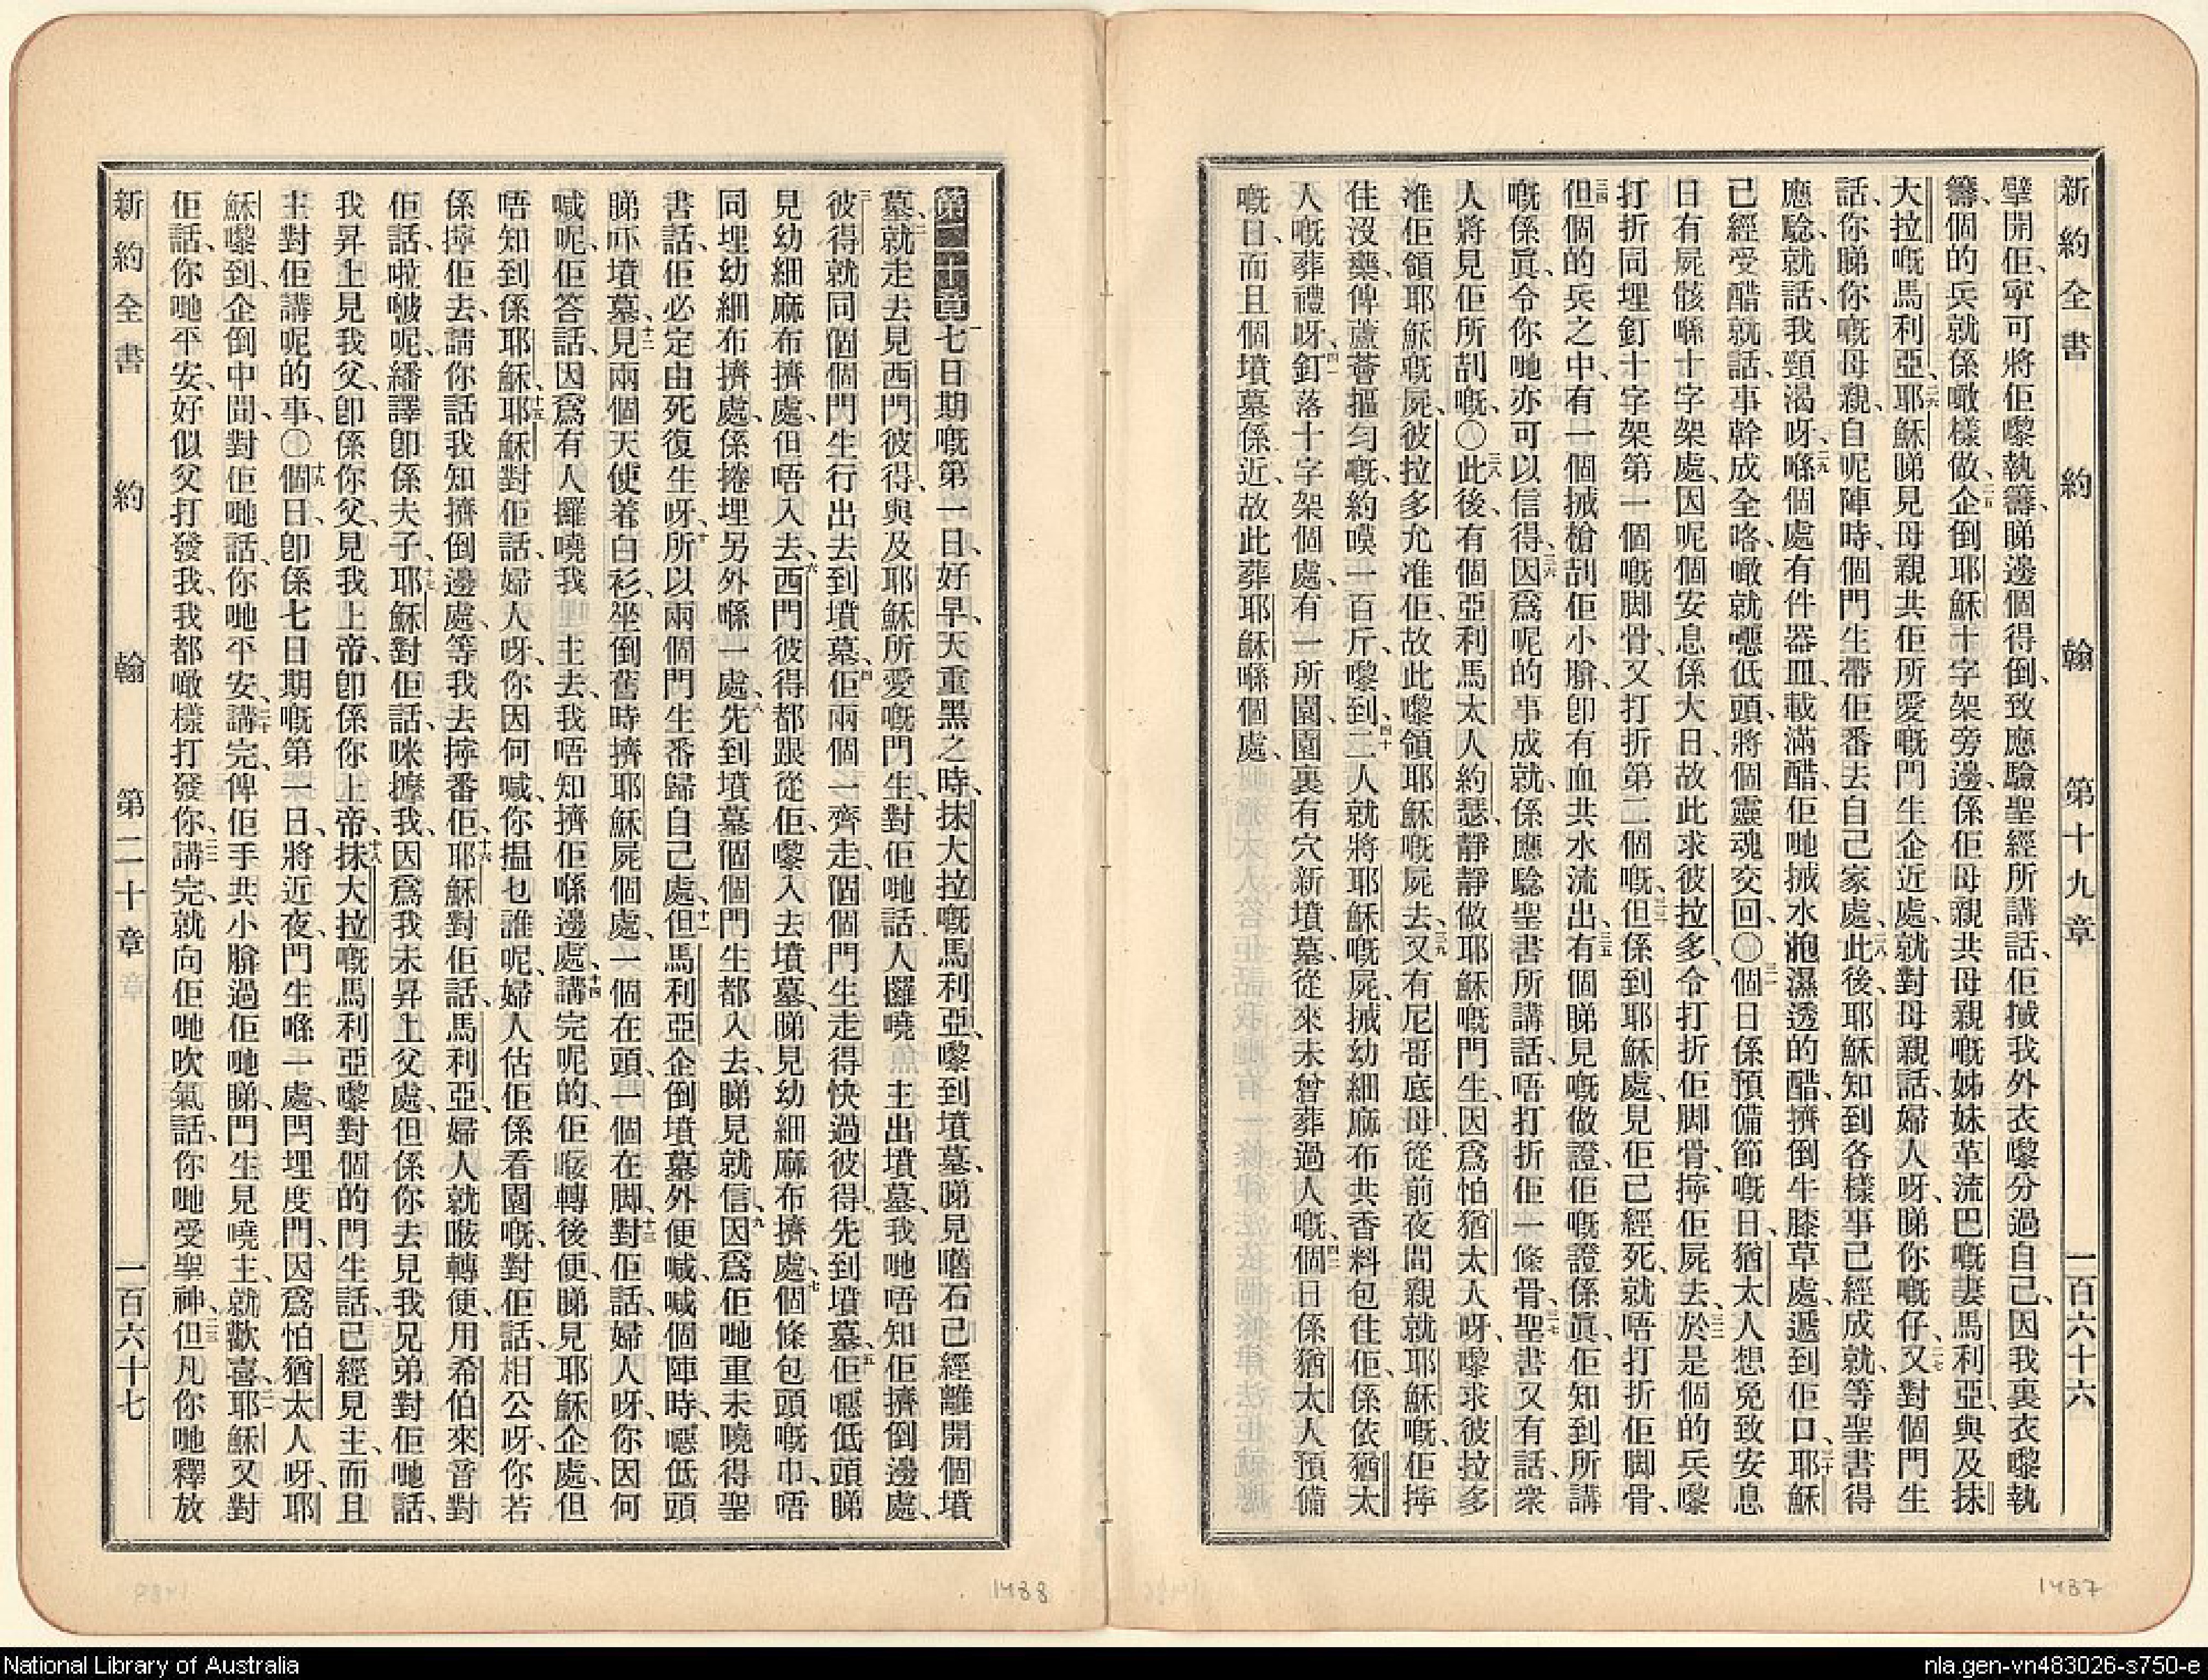 新約全書 約翰 第十九章 一百六十六
擘開佢、寧可將佢嚟執籌、睇邊個得倒、致應驗聖經所講話、佢搣我外衣嚟分過自己、因我裏衣嚟執
籌、個的兵就係噉樣做、二五企倒耶穌十字架旁邊、係佢母親共母親嘅姊妹革流巴嘅妻馬利亞、與及抹
大拉嘅馬利亞、二六耶穌睇見母親共佢所愛嘅門生企近處、就對母親話、婦人呀、睇你嘅仔、二七又對個門生
話、你睇你嘅母親、自呢陣時、個門生帶佢番去自己家處、二八此後、耶穌知到各樣事已經成就、等聖書得
應驗、就話、我頸渴呀、二九喺個處有件器皿、載滿醋、佢哋搣水㿺濕透的醋、擠倒牛膝草處、遞到佢口、三十耶穌
已經受醋就話、事幹成全咯、噉就嚈低頭、將個靈魂交回、三一個日係預備節嘅日、猶太人想免致安息
日有屍骸喺十字架處、因呢個安息係大日、故此求彼拉多、令打折佢脚骨、擰佢屍去、三二於是個的兵嚟
打折同埋釘十字架第一個嘅脚骨、又打折第二個嘅、三三但係到耶穌處、見佢已經死、就唔打折佢脚骨、
三四但個的兵之中、有一個搣槍刮佢小脇、卽有血共水流出、三五有個睇見嘅做證、佢嘅證係眞、佢知到所講
嘅係眞、令你哋亦可以信得、三六因爲呢的事成就、係應驗聖書所講話、唔打折佢一條骨、三七聖書又有話、衆
人將見佢所刮嘅、三八此後、有個亞利馬太人約瑟、靜靜做耶穌嘅門生、因爲怕猶太人呀、嚟求彼拉多
准佢領耶穌嘅屍、彼拉多允准佢、故此嚟領耶穌嘅屍去、三九又有尼哥底母、從前夜間親就耶穌嘅、佢擰
住沒藥、俾蘆薈搵匀嘅、約嘆一百斤、嚟到、四十二人就將耶穌嘅屍、搣幼細麻布共香料包住佢、係依猶太
人嘅葬禮呀、四一釘落十字架個處、有一所園、園裏有穴新墳墓、從來未曾葬過人嘅、四二個日係猶太人預備
嘅日、而且個墳墓係近、故此葬耶穌喺個處、
第二十章 一七日期嘅第一日、好早、天重黑之時、抹大拉嘅馬利亞、嚟到墳墓、睇見嚿石已經離開個墳
墓、二就走去見西門彼得、與及耶穌所愛嘅門生、對佢哋話、人攞嘵 主出墳墓、我哋唔知佢擠倒邊處、
三彼得就同個個門生行出去到墳墓、四佢兩個一齊走、個個門生走得快過彼得、先到墳墓、五佢嚈低頭睇
見幼細麻布擠處、但唔入去、六西門彼得都跟從佢、嚟入去墳墓、睇見幼細麻布擠處、七個條包頭嘅巾、唔
同埋幼細布擠處、係捲埋另外喺一處、八先到墳墓個個門生都入去、睇見就信、九因爲佢哋重未曉得聖
書話、佢必定由死復生呀、十所以兩個門生番歸自己處、十一但馬利亞企倒墳墓外便喊、喊個陣時、嚈低頭
睇吓墳墓、十二見兩個天使着白衫、坐倒舊時擠耶穌屍個處、一個在頭、一個在脚、十三對佢話、婦人呀、你因何
喊呢、佢答話、因爲有人攞嘵我 主去、我唔知擠佢喺邊處、十四講完呢的、佢𠽤轉後便、睇見耶穌企處、但
唔知到係耶穌、十五耶穌對佢話、婦人呀、你因何喊、你搵乜誰呢、婦人估佢係看園嘅、對佢話、相公呀、你若
係擰佢去、請你話我知擠倒邊處、等我去擰番佢、十六耶穌對佢話、馬利亞、婦人就𠽤轉便、用希伯來音對
佢話、啦皺呢、繙譯卽係夫子、十七耶穌對佢話、咪擸我、因爲我未昇上父處、但係你去見我兄弟對佢哋話、
我昇上見我父、卽係你父、見我上帝、卽係你上帝、十八抹大拉嘅馬利亞、嚟對個的門生話、已經見主、而且
主對佢講呢的事、十九個日、卽係七日期嘅第一日、將近夜、門生喺一處、閂埋度門、因爲怕猶太人呀、耶
穌嚟到、企倒中間、對佢哋話、你哋平安、二十講完、俾佢手共小脇過佢哋睇、門生見嘵主、就歡喜、二一耶穌又對
佢話、你哋平安、好似父打發我、我都噉樣打發你、二二講完、就向佢哋吹氣話、你哋受聖神、二三但凡你哋釋放
新約全書 約翰 第二十章 一百六十七
1488
1487
National Library of Australia
nla.gen-vn483026-s750-e